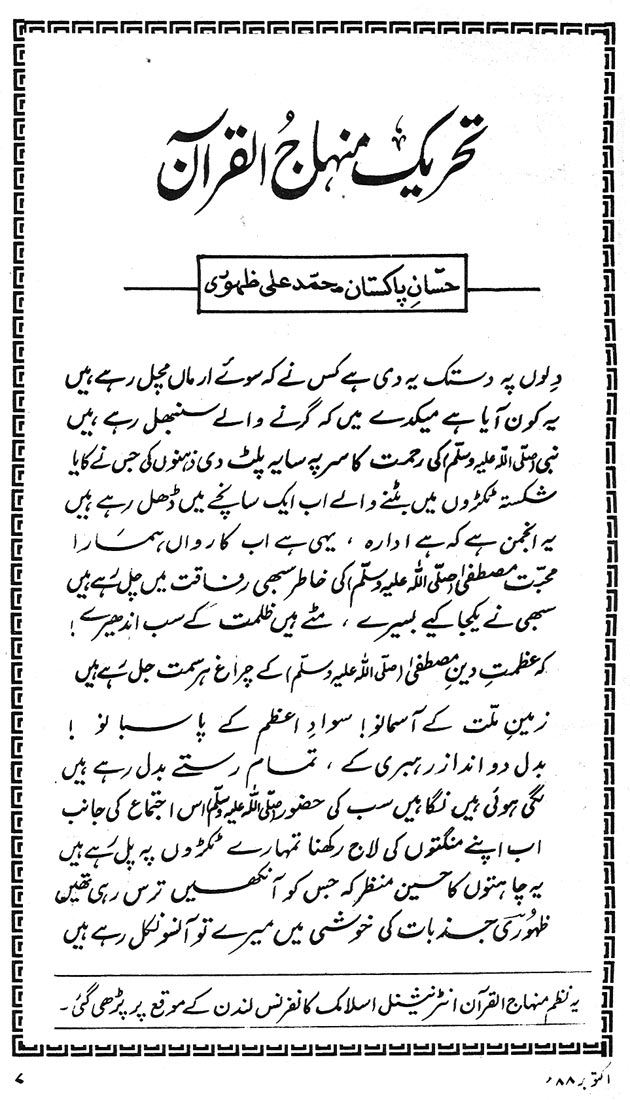 تحریک منہاجُ القرآن
حسّانِ پاکستان محمّد علی ظہوری
دِلوں پہ دستک یہ دی ہے کس نے کہ سوئے ارماں مچل رہے ہیں
یہ کون آیا ہے میکدے میں کہ گرنے والے سنبھل رہے ہیں
نبی (صلّی اللہ علیہ وسلّم) کی رحمت کا سر پہ سایہ پلٹ دی ذہنوں کی جس نے کایا
شکستہ ٹکڑوں میں بٹنے والے اب ایک سانچے میں ڈھل رہے ہیں
یہ انجمن ہے کہ ہے ادارہ ، یہی ہے اب کارواں ہمارا
محبّت مصطفیٰ (صلّی اللہ علیہ وسلّم) کی خاطر سبھی رفاقت میں چل رہے ہیں
سبھی نے یکجا کیے بسیرے ، مٹے ہیں ظلمت کے سب اندھیرے !
کہ عظمتِ دینِ مصطفیٰ (صلّی اللہ علیہ وسلّم) کے چراغ ہر سمت جل رہے ہیں
زمینِ ملّت کے آسمانو ! سوادِ اعظم کے پاسبانو !
بدل دو انداز رہبری کے ، تمام رستے بدل رہے ہیں
لگی ہوئی ہیں نگاہیں سب کی حضور (صلّی اللہ علیہ وسلّم) اس اجتماع کی جانب
اب اپنے منگتوں کی لاج رکھنا تمہارے ٹکڑوں پہ پل رہے ہیں
یہ چاہتوں کا حسین منظر کہ جس کو آنکھیں ترس رہی تھیں
ظہوریؔ جذبات کی خوشی میں میرے تو آنسو نکل رہے ہیں
یہ نظم منہاج القرآن انٹرنیشنل اسلامک کانفرنس لندن کے موقع پر پڑھی گئی ۔
اکتوبر ۸۸ء
۷